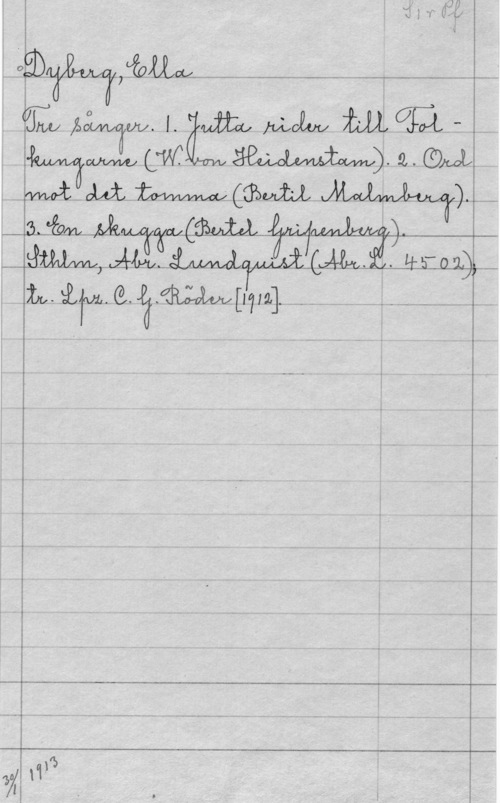 S 1 r Pf
Dyberg, Ella
Tre sånger. 1. Jutta rider till Fol-
kungarne (W. von Heidenstam). 2. Ord
mot det tomma (Bertil Malmberg).
3. En skugga (Bertel Gripenberg).
Sthlm, Abr. Lundquist (Abr. L. 4502);
tr. Lpz. C. G. Röder [1912].
30/1 1913